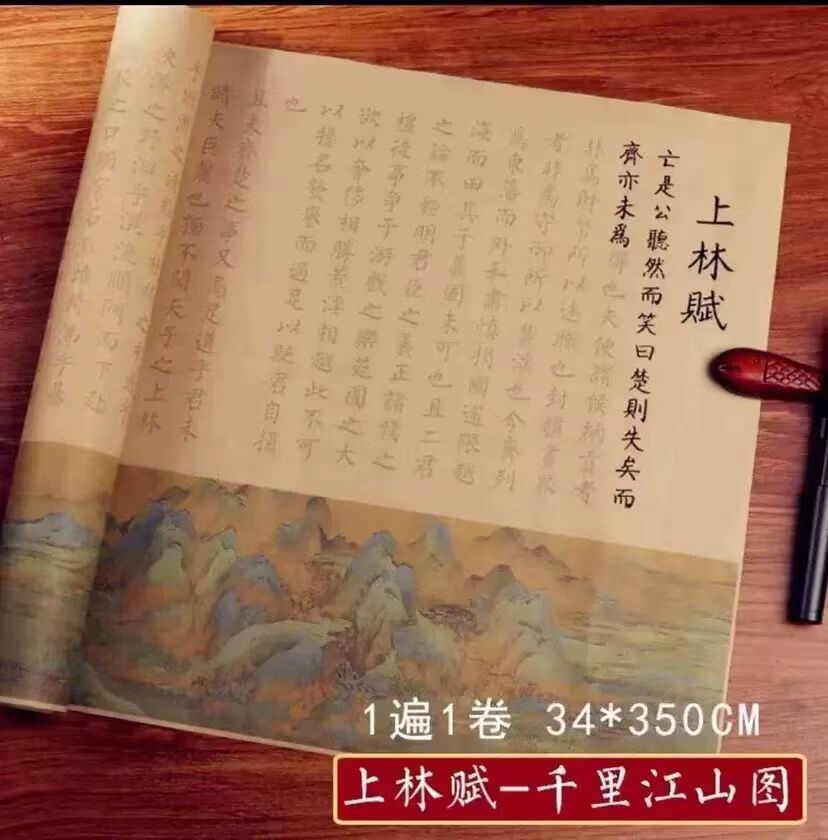 上林賦
亡是公聽然而笑曰楚則失矣而
齊亦未爲得也夫使諸侯納貢者
非爲財幣所以述職也封疆畫界
者非爲守御所以禁淫也今齊列
爲東藩而外私肅慎捐國逾限越
海而田其于義固未可也且二君
之論不務明君臣之義正諸侯之
禮徒事爭于游戲之樂苑囿之大
欲以奢侈相勝荒淫相越此不可
以揚名發譽而適足以貶君自損
也
且夫齊楚之事又烏足道乎君未
睹夫巨麗也獨不聞天子之上林
1遍1卷 34*350CM
上林赋-千里江山图